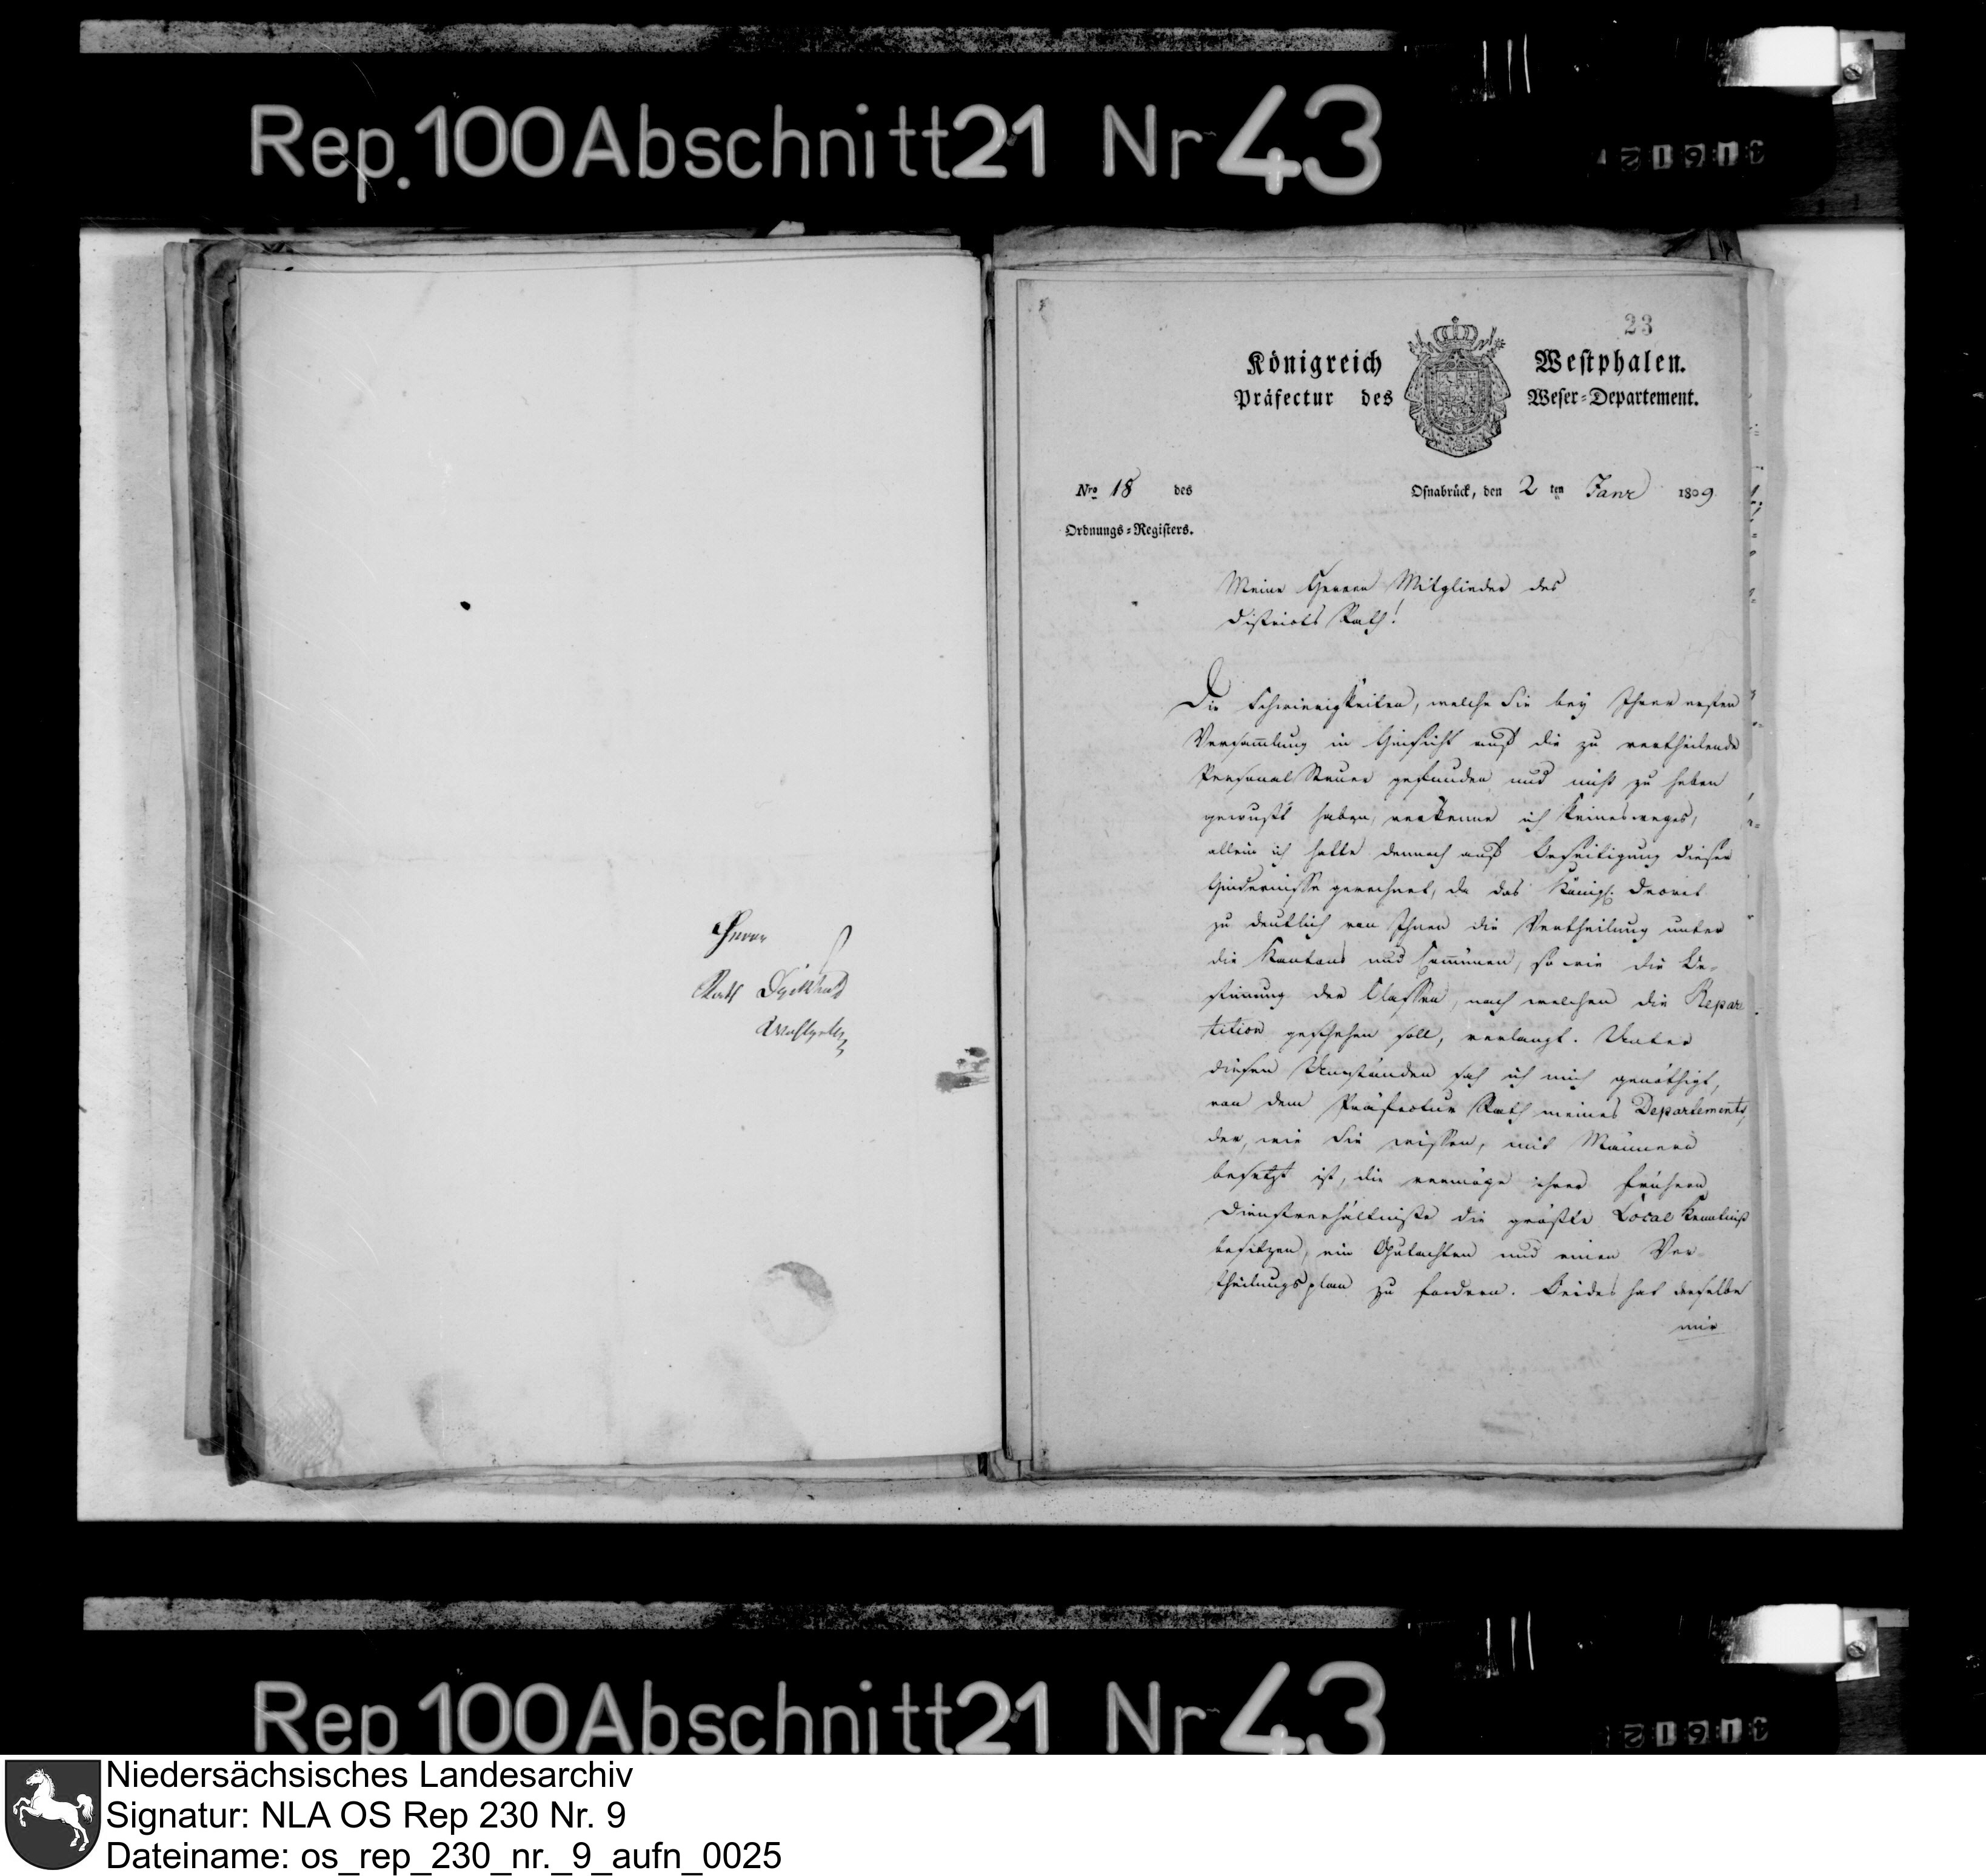 Rep. 100 Abschnitt 21 Nr 43
Herrn
Rath
23
Königreich Westphalen.
Präfectur des Weser-Departement.
Nro 18 des
Ordnungs-Registers.
Osnabrück, den 2 ten Janr 1809
Meine Herren Mitglieder des
Districts Rath!
Die Schwierigkeiten, welche Sie bey Ihrer ersten
Versamlung in Hinsicht auf die zu vertheilende
Personal Steuer gefunden und nicht zu heben
gewußt haben, verkenne ich keinesweges,
allein ich hatte dennoch auf Beseitigung dieser
Hindernisse gerechnet, da das Königl. Decret
zu deutlich von Ihnen die Vertheilung unter
die Kantons und Communen, so wie die Be-
stimmung der Classen, nach welchen die Repar
tition geschehen soll, verlangt. Unter
diesen Umständen sah ich mich genöthigt,
von dem Präfectur Rath meines Departements,
der, wie Sie wissen, mit Männern
besetzt ist, die vermöge ihrer frühern
Dienstverhältniße die größte Local Kenntniß
besitzen, ein Gutachten und einen Ver
theilungsplan zu fordern. Beides hat derselbe
mir
Rep 100 Abschnitt 21 Nr 43
Niedersächsisches Landesarchiv
Signatur: NLA OS Rep 230 Nr. 9
Dateiname: os_rep_230_nr._9_aufn_0025